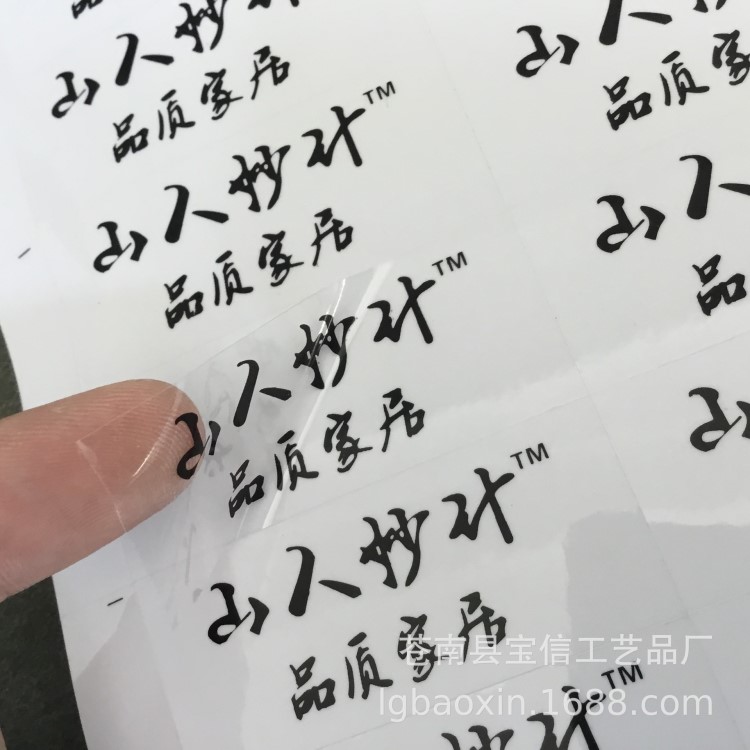 品质
山人妙计
品质家居
山人妙计™
品质家居
山人妙计™
品质家居
山人妙计™
品质家居
妙计™
山人
品质家
山人
品质
山
苍南县宝信工艺品厂
lgbaoxin.1688.com